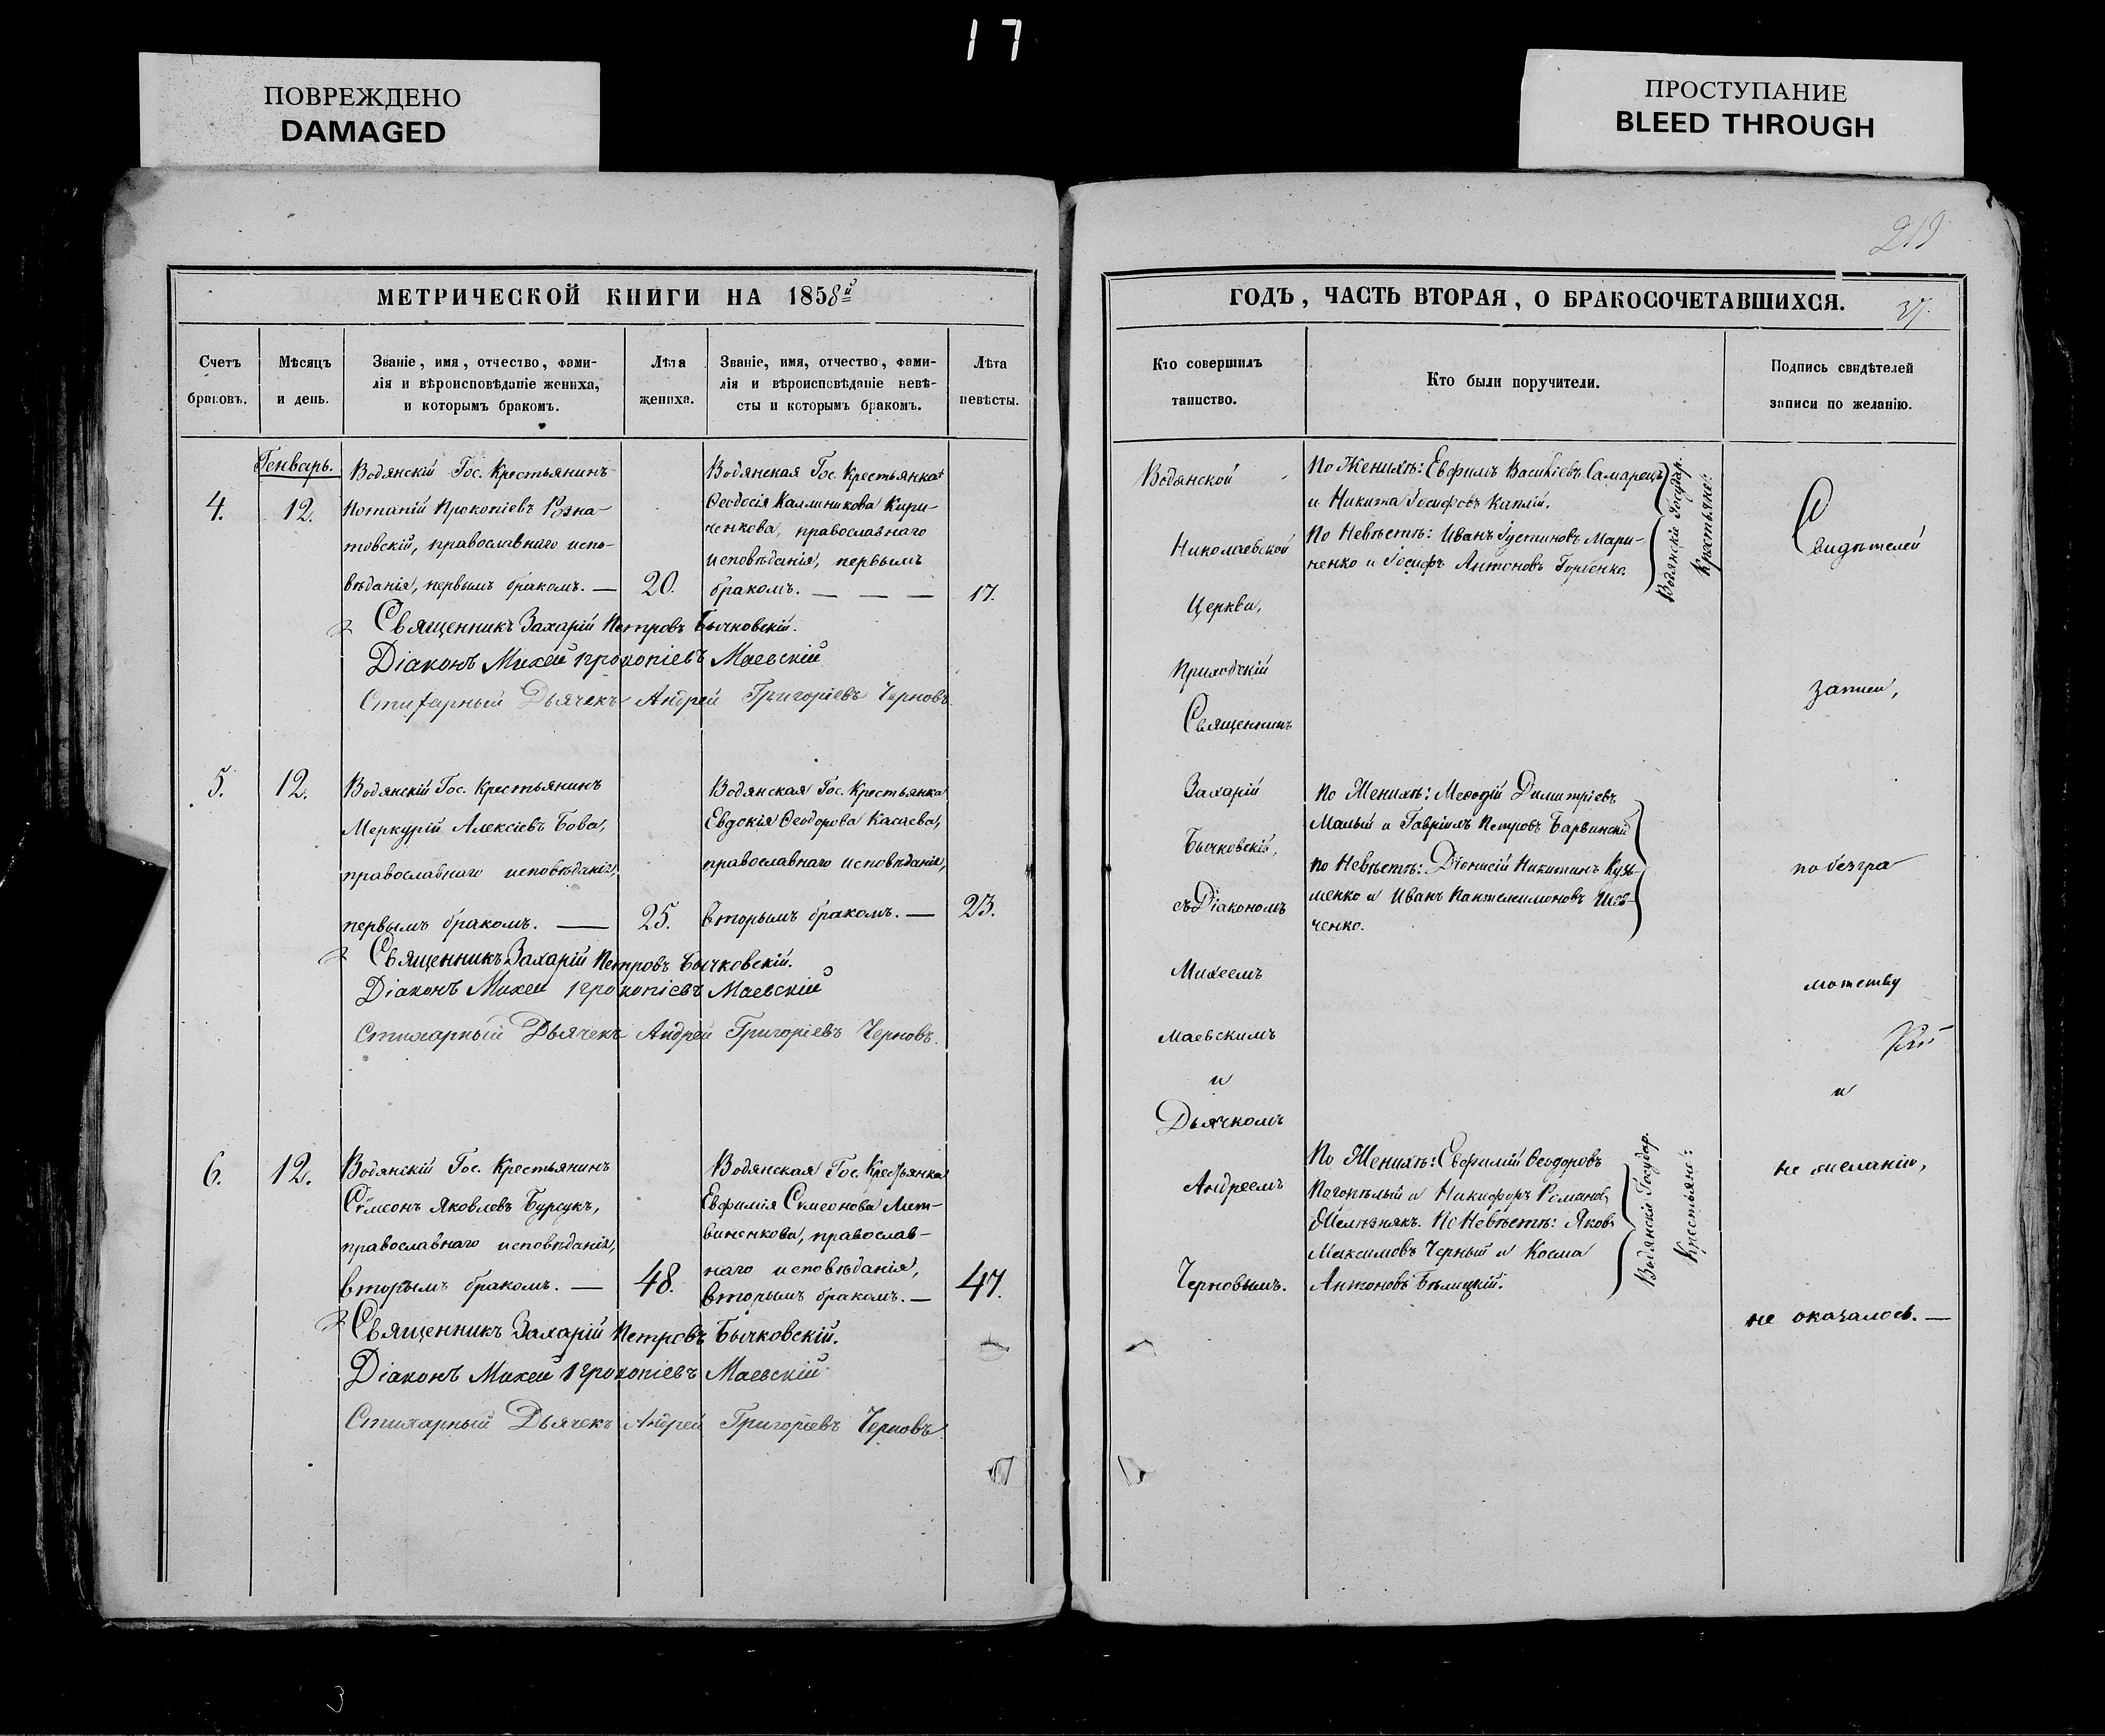 17
ПОВРЕЖДЕНО
DAMAGED
ПРОСТУПАНИЕ
BLEED THROUGH
219
МЕТРИЧЕСКОЙ КНИГИ НА 1858й
Счетъ браковъ.
Мѣсяцъ и день.
Званіе, имя, отчество, фами-
лія и вѣроисповѣданіе жениха,
и которымъ бракомъ.
Лѣта жениха.
Званіе, имя, отчество, фами-
лія и вѣроисповѣданіе невѣ-
сты и которымъ бракомъ.
Лѣта невѣсты.
Генварь.
4.
12.
Водянскій Гос. Крестьянинъ
Потапій Прокопіевъ Розна-
товскій, православнаго испо-
вѣданія, первымъ бракомъ. —
20.
Водянская Гос. Крестьянка
Ѳеодосія Каллиникова Кири-
ченкова, православнаго
исповѣданія, первымъ
бракомъ. — — —
17.
Священникъ Захарій Петровъ Бычковскій.
Діаконъ Михей Прокопіевъ Маевскій
Стихарный Дьячекъ Андрей Григоріевъ Черновъ.
5.
12.
Водянскій Гос. Крестьянинъ
Меркурій Алексіевъ Бова,
православнаго исповѣданія,
первымъ бракомъ. —
25.
Водянская Гос. Крестьянка
Евдокія Ѳеодорова Касаева,
православнаго исповѣданія,
вторымъ бракомъ. —
23.
Священникъ Захарій Петровъ Бычковскій.
Діаконъ Михей Прокопіевъ Маевскій
Стихарный Дьячекъ Андрей Григоріевъ Черновъ.
6.
12.
Водянскій Гос. Крестьянинъ
Сѵмеонъ Яковлевъ Бурсукъ,
православнаго исповѣданія,
вторымъ бракомъ. —
48.
Водянская Гос. Крестьянка
Евфимія Симеонова Лит-
виненкова, православ-
наго исповѣданія,
вторымъ бракомъ. —
47.
Священникъ Захарій Петровъ Бычковскій.
Діаконъ Михей Прокопіевъ Маевскій
Стихарный Дьячекъ Андрей Григоріевъ Черновъ
ГОДЪ, ЧАСТЬ ВТОРАЯ, О БРАКОСОЧЕТАВШИХСЯ.
Кто совершилъ
таинство.
Кто были поручители.
Подпись свидѣтелей
записи по желанію.
Водянской
Николаевской
Церкви,
Приходскій
Священникъ
Захарій
Бычковскій,
съ Діакономъ
Михеемъ
Маевскимъ
и
Дьячкомъ
Андреемъ
Черновымъ.
По Женихѣ: Евфимъ Василіевъ Самарецъ
и Никита Іосифовъ Каплій.
По Невѣстѣ: Иванъ Іустиновъ Мари-
ненко и Іосифъ Антоновъ Горбенко.
Водянскіе Государ.
Крестьяне:
По Женихѣ: Меѳодій Димитріевъ
Малый и Гавріилъ Петровъ Барвинскій
по Невѣстѣ: Діонисій Никитинъ Кузь-
менко и Иванъ Пантелеимоновъ Шев-
ченко.
По Женихѣ: Евфимій Ѳеодоровъ
Погорѣлый и Никифоръ Романов.
Желѣзнякъ. По Невѣстѣ: Яковъ
Максимовъ Черный и Косма
Антоновъ Бѣлицкій.
Водянскіе Государ.
Крестьяне:
Свидѣтелей
записи,
по безгра
мотству
и
не желанію,
не оказалось. —
3